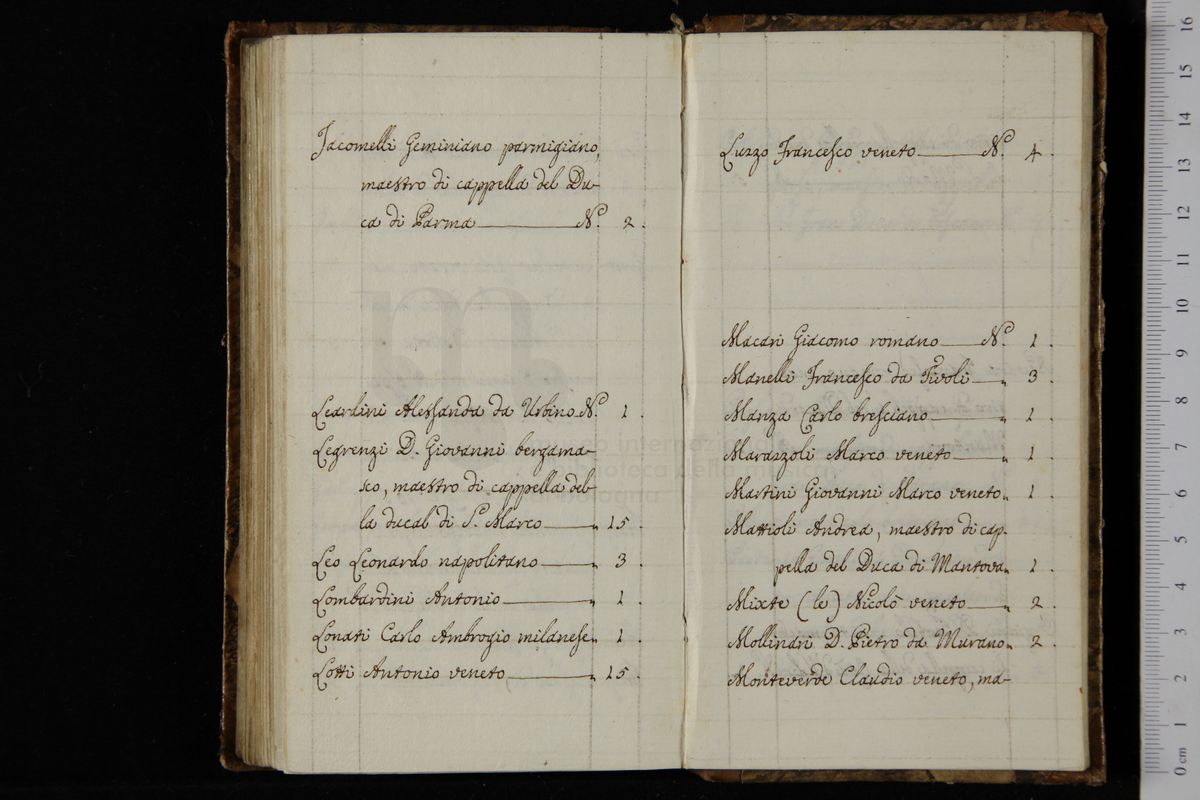 Jacomelli Geminiano parmigiano,
maestro di cappella del Du-
ca di Parma N.o 2.
Leardini Alessandro da Urbino N.o 1
Legrenzi D. Giovanni bergama-
sco, maestro di cappella del-
la ducal di S. Marco „ 15.
Leo Leonardo napolitano „ 3.
Lombardini Antonio „ 1.
Lonati Carlo Ambrogio milanese „ 1.
Lotti Antonio veneto „ 15.
Luzzo Francesco veneto N.o 4.
Macari Giacomo romano N.o 1.
Manelli Francesco da Tivoli „ 3.
Manza Carlo bresciano „ 1.
Marazzoli Marco veneto „ 1.
Martini Giovanni Marco veneto „ 1.
Mattioli Andrea, maestro di cap-
pella del Duca di Mantova „ 1.
Mixte (le) Nicolò veneto „ 2.
Mollinari D. Pietro da Murano „ 2.
Monteverde Claudio veneto, ma-
museo internazionale
biblioteca della musica
bologna
0 cm 1 2 3 4 5 6 7 8 9 10 11 12 13 14 15 16